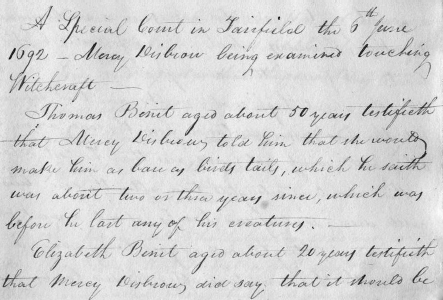 A Special Court in Fairfield the 6th June
1692 – Mercy Disbrow being examined touching
Witchcraft —
Thomas Benit aged about 50 years testifieth
that Mercy Disbrow told him that she would
make him as bare as birds tails, which he saith
was about two or three years since, which was
before he lost any of his creatures. —
Elizabeth Benit aged about 20 years testifieth
that Mercy Disbrow did say that it should be